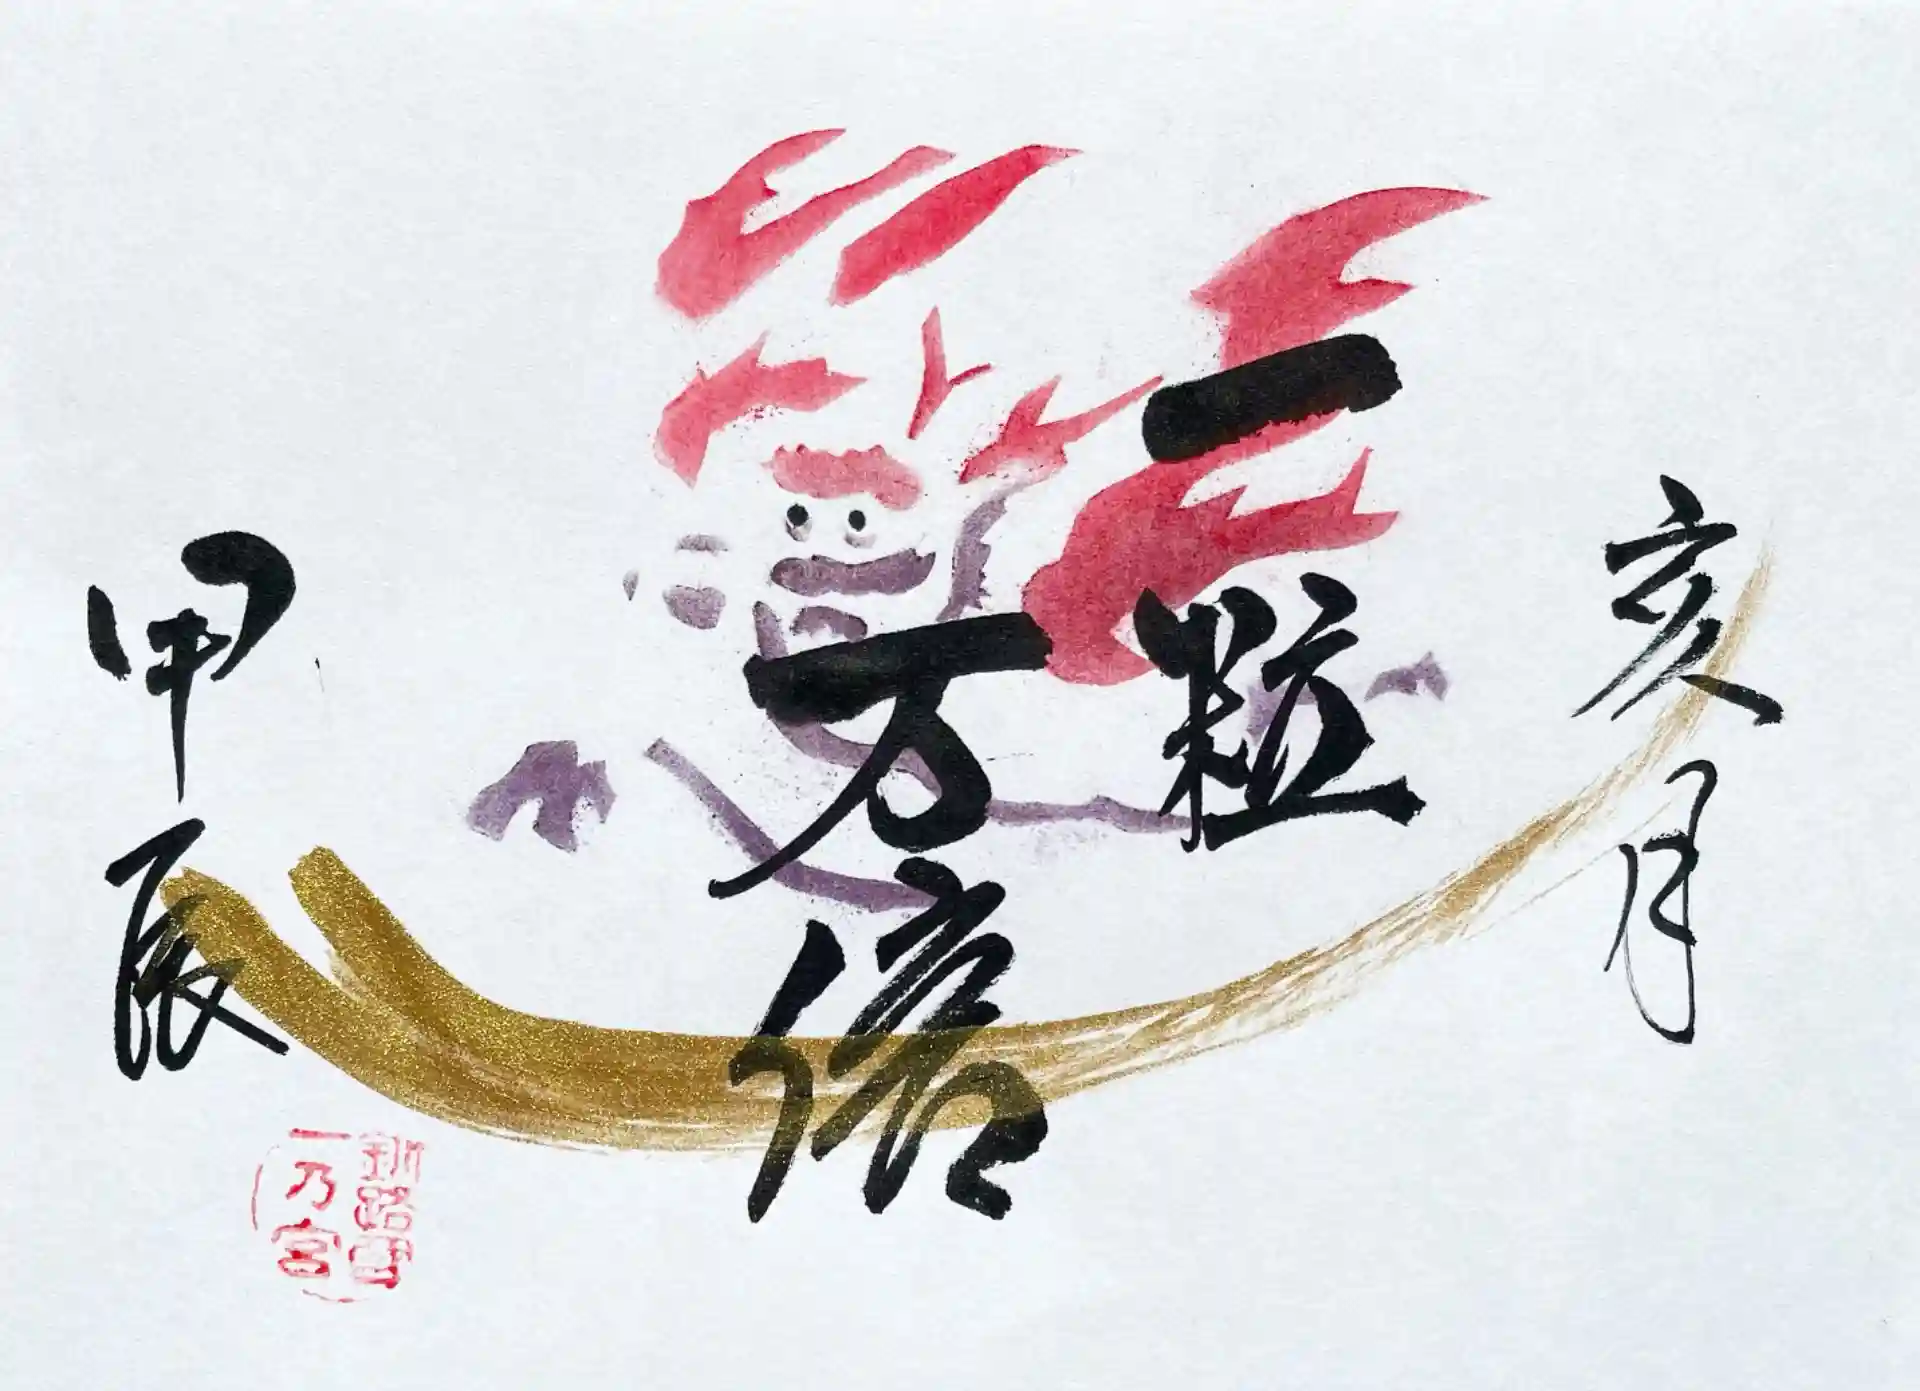 亥月
一粒
万倍
甲辰
釧路国
一乃宮